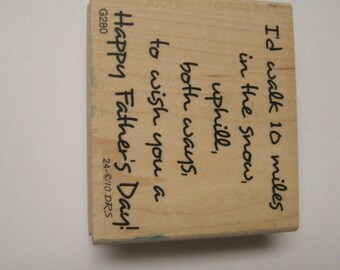 I'd walk 10 miles
in the snow,
uphill,
both ways,
to wish you a
Happy Father's Day!
G280
24-©10 DRS